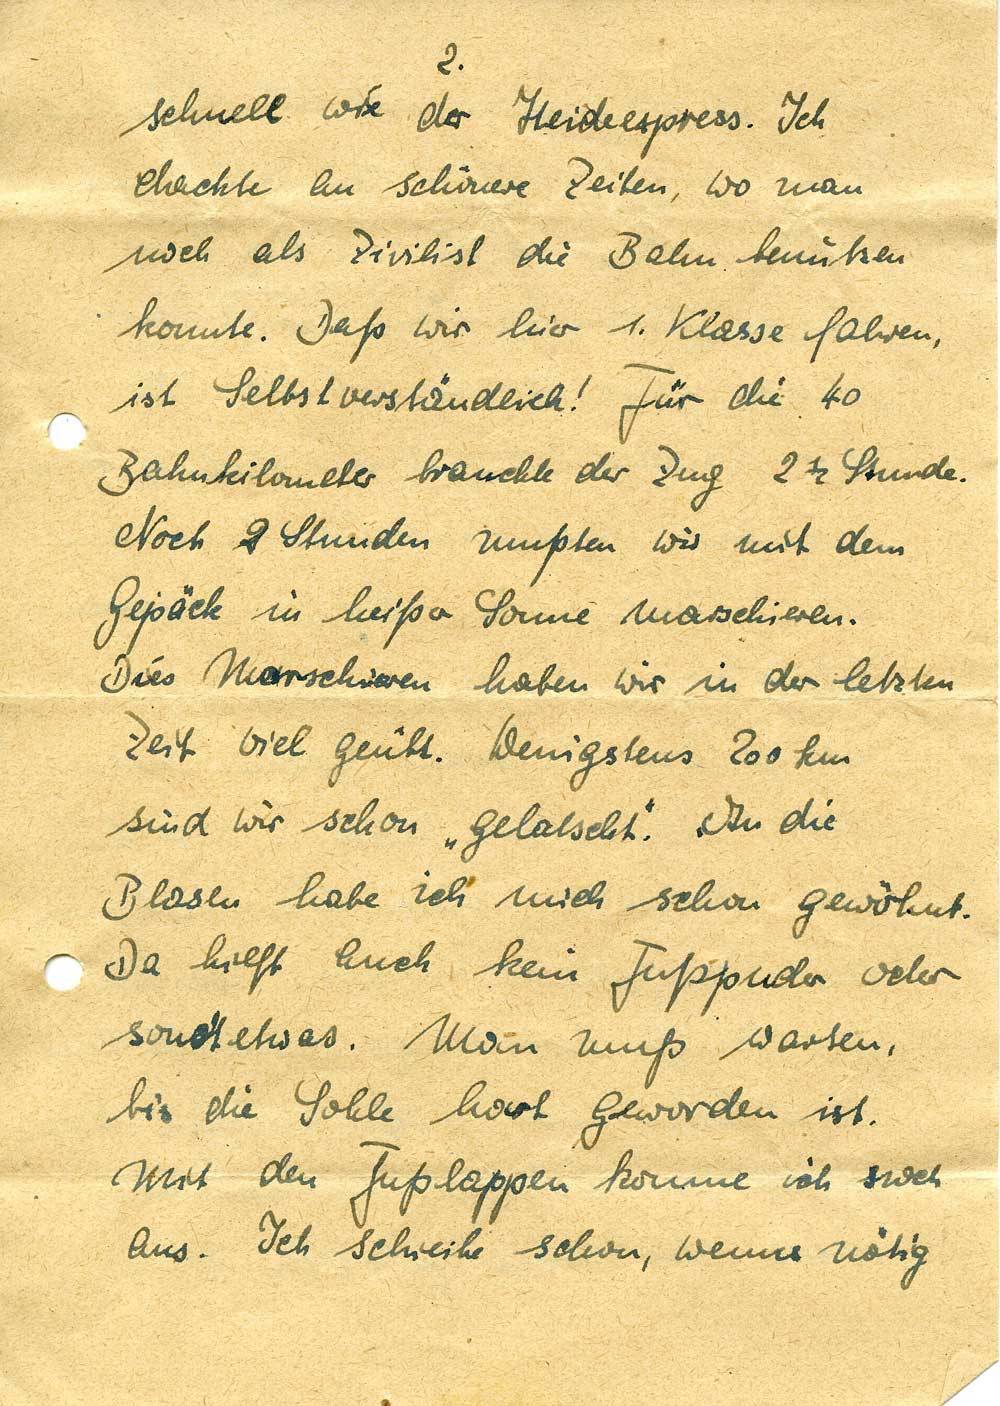 2.
schnell wie der Heideexpress. Ich
dachte an schönere Zeiten, wo man
noch als Zivilist die Bahn benützen
konnte. Daß wir hier 1. Klasse fahren,
ist Selbstverständlich! Für die 40
Bahnkilometer brauchte der Zug 2 ½ Stunde.
Noch 2 Stunden mußten wir mit dem
Gepäck in heißer Sonne marschieren.
Dies Marschieren haben wir in der letzten
Zeit viel geübt. Wenigstens 200 km
sind wir schon „gelatscht". An die
Blasen habe ich mich schon gewöhnt.
Da hilft auch kein Fußpuder oder
sonst etwas. Man muß warten,
bis die Sohle hart geworden ist.
Mit den Fußlappen komme ich noch
aus. Ich schreibe schon, wenn nötig